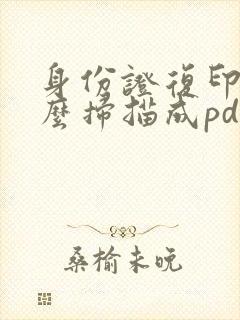 身份證復印
麼掃描成pd
桑榆未晚